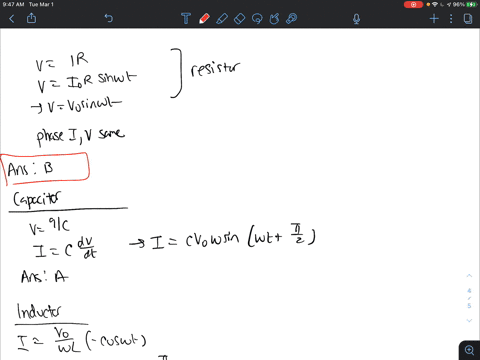 9:47 AM Tue Mar 1
96%
V = IR
V = I₀R sinωt
→ V = V₀sinωt
] resistor
phase I, V same
Ans: B
Capacitor
V = q/C
I = C dV/dt → I = CV₀ωsin(ωt + π/2)
Ans: A
Inductor
I = V₀/ωL (-cosωt)